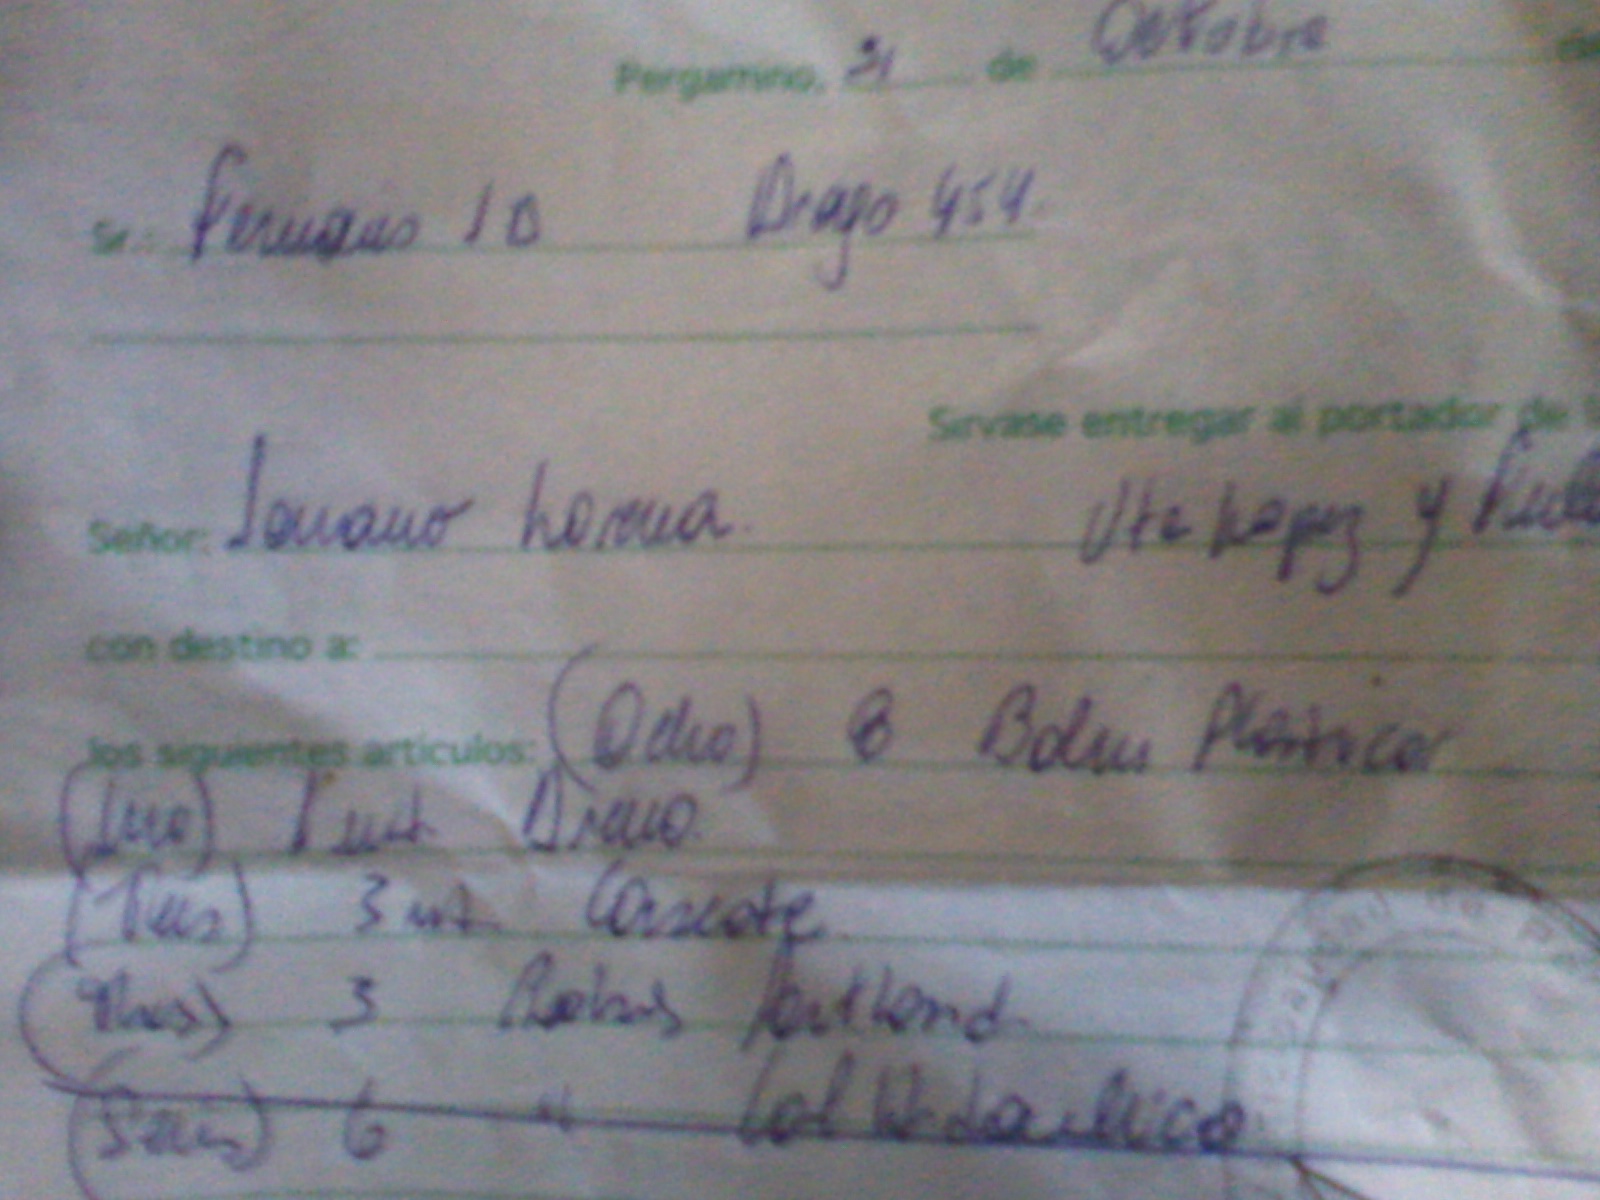 Pergamino, 31 de Octubre de
Sr.: 10 Drago 454
Sirvase entregar al portador de
Señor: Lorena Vte Lopez y
con destino a:
los siguientes articulos: (Ocho) 8 Bolsas Plasticor
(Uno) 1 mt Arena
(Tres) 3 mt Cascote
(Tres) 3 Bolsas Portland
(Seis) 6 " Cal Hidraulica